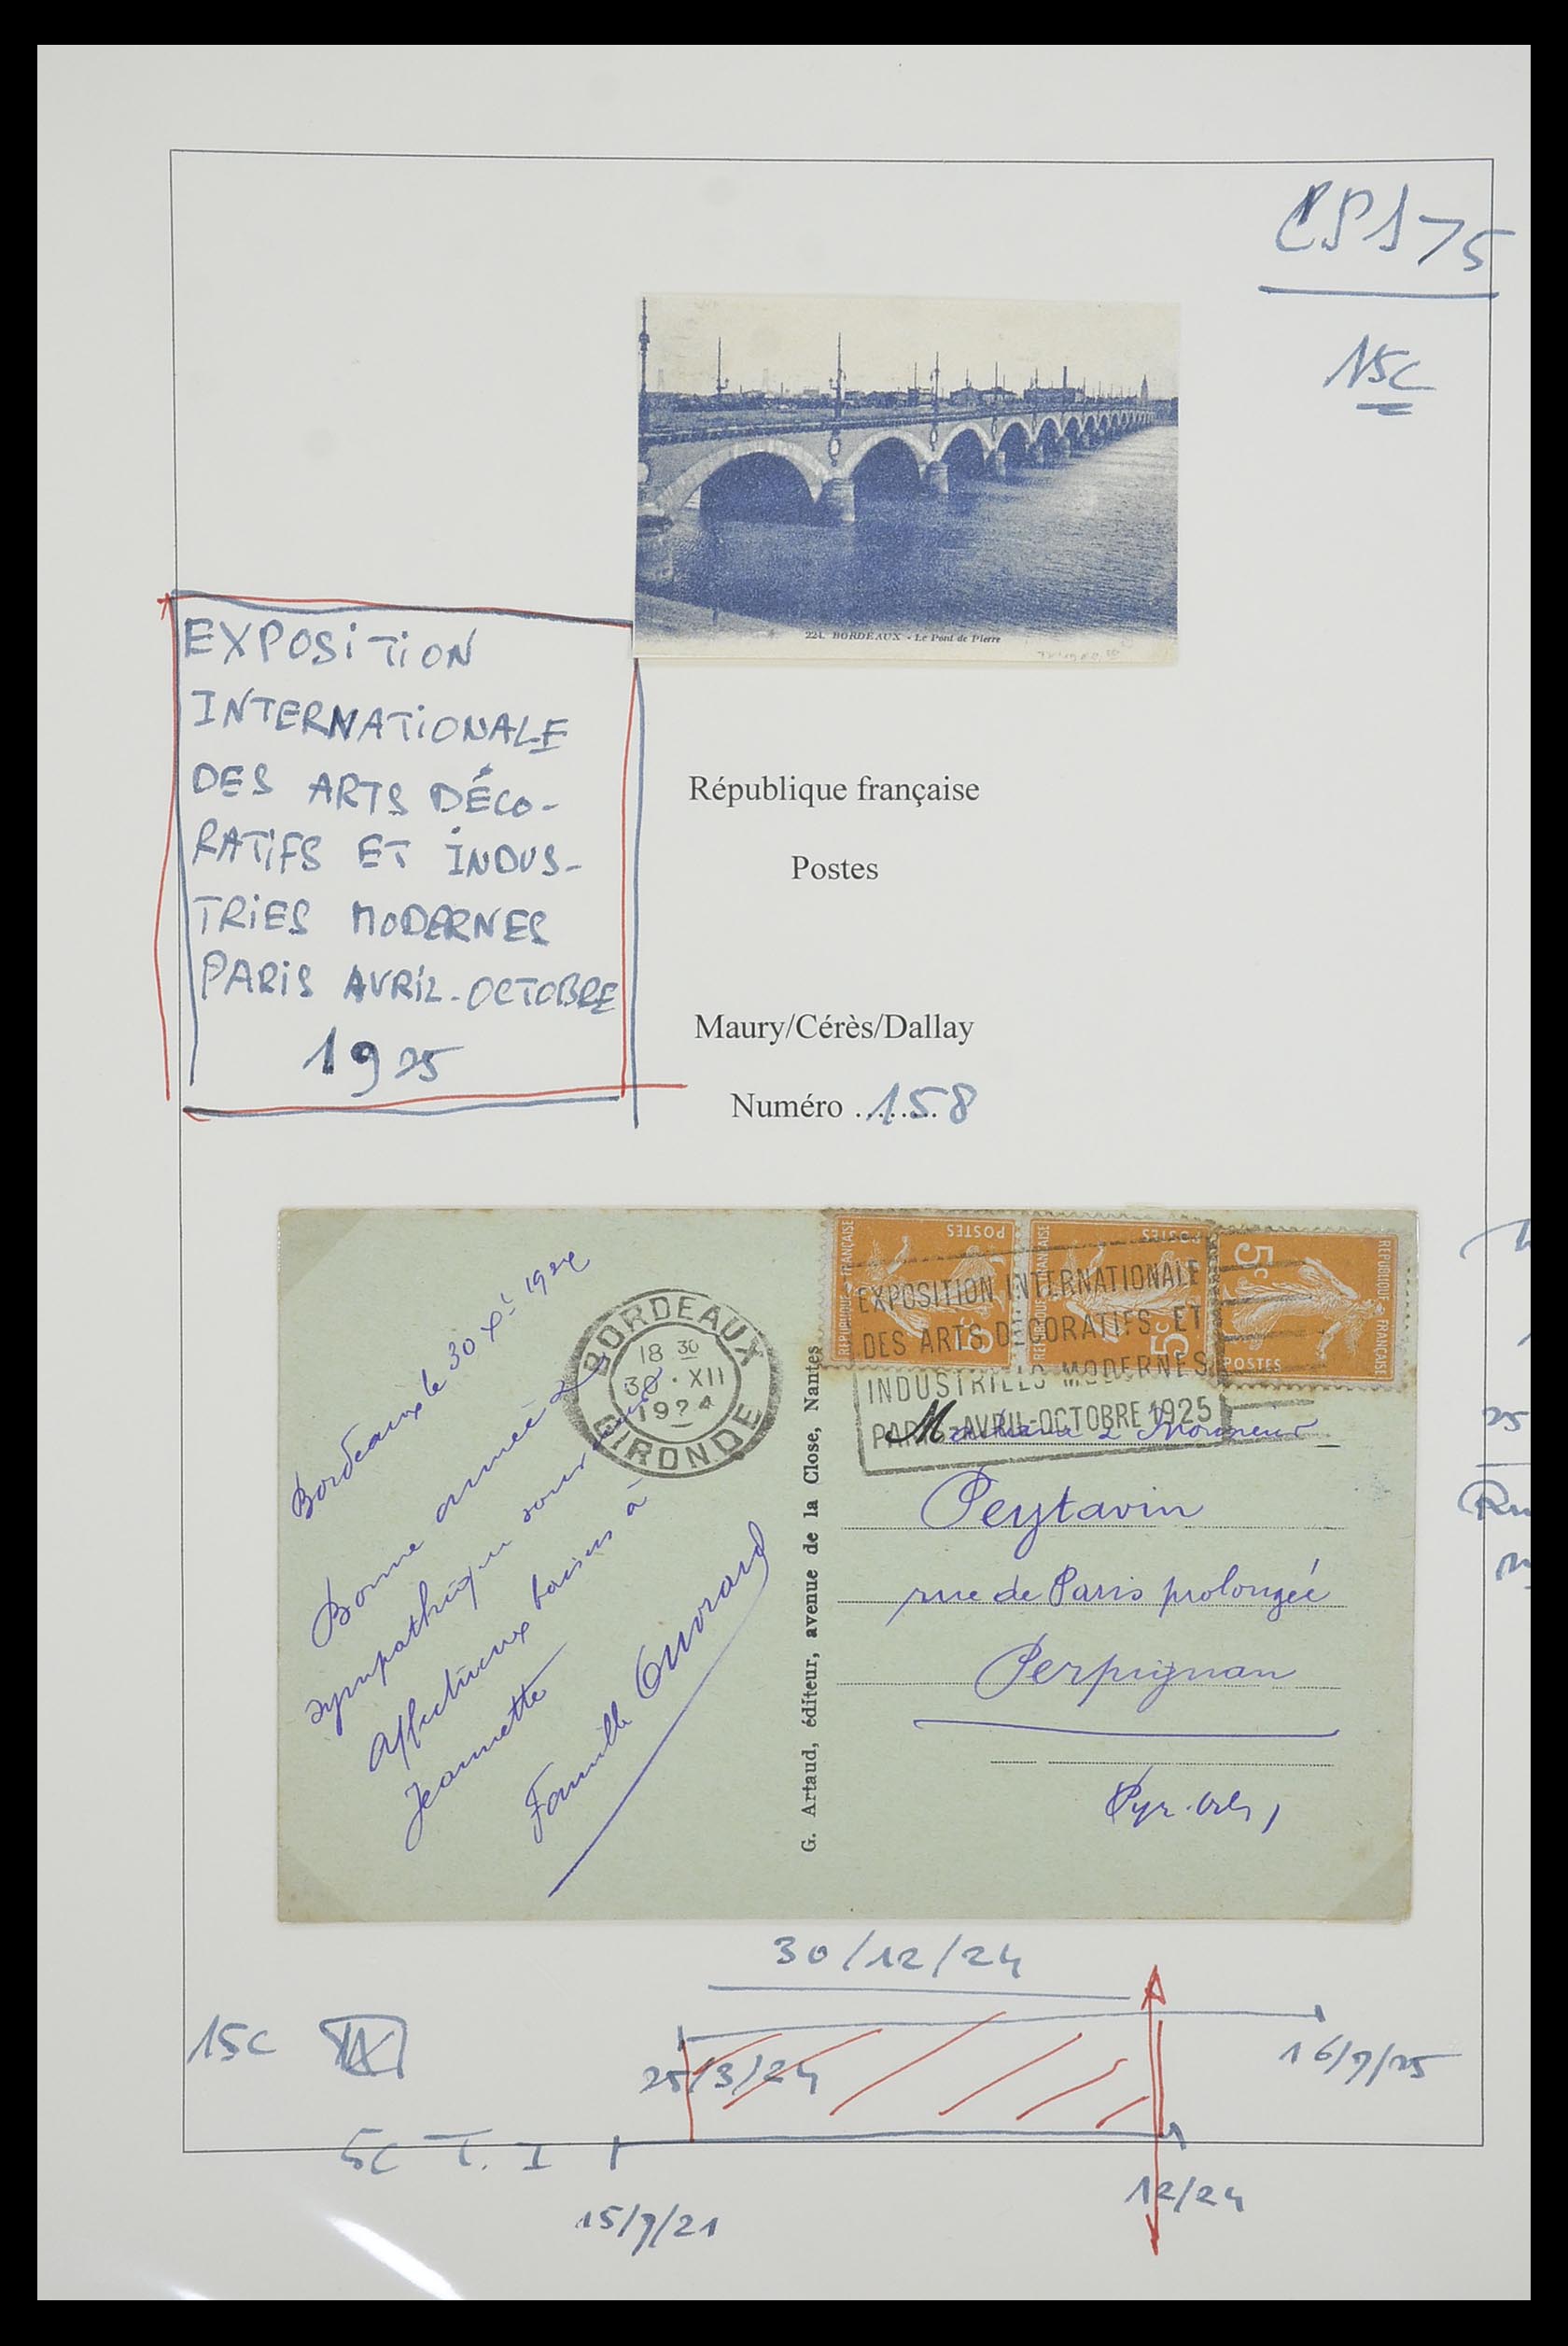 CPS75
15C
221. BORDEAUX - Le Pont de Pierre
EXPOSITION
INTERNATIONALE
DES ARTS DÉCO-
RATIFS ET INDUS-
TRIES MODERNES
PARIS AVRIL-OCTOBRE
1925
République française
Postes
Maury/Cérès/Dallay
Numéro ........158
Bordeaux le 30 Xᵇ 1924
Bonne année &
sympathique souvenir
Affectueux baisers à
Jeannette
Famille Ouvrard
BORDEAUX
18 30
30 · XII
1924
GIRONDE
G. Artaud, éditeur, avenue de la Close, Nantes
REPUBLIQUE FRANÇAISE
POSTES
5c
REPUBLIQUE FRANÇAISE
POSTES
5c
REPUBLIQUE FRANÇAISE
POSTES
5c
EXPOSITION INTERNATIONALE
DES ARTS DECORATIFS ET
INDUSTRIELS MODERNES
PARIS-AVRIL-OCTOBRE 1925
Madame & Monsieur
Peytavin
rue de Paris prolongée
Perpignan
Pyr. Orles
25
30/12/24
15C
25/3/24
16/7/25
5C T. I
15/7/21
12/24